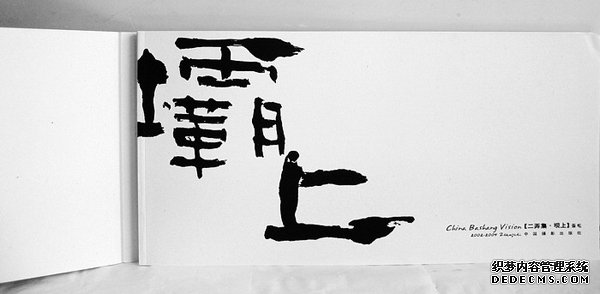 壩上
China Bashang Vision【二弄集·坝上】
2002-2009 中国摄影出版社
织梦内容管理系统
DEDECMS.COM